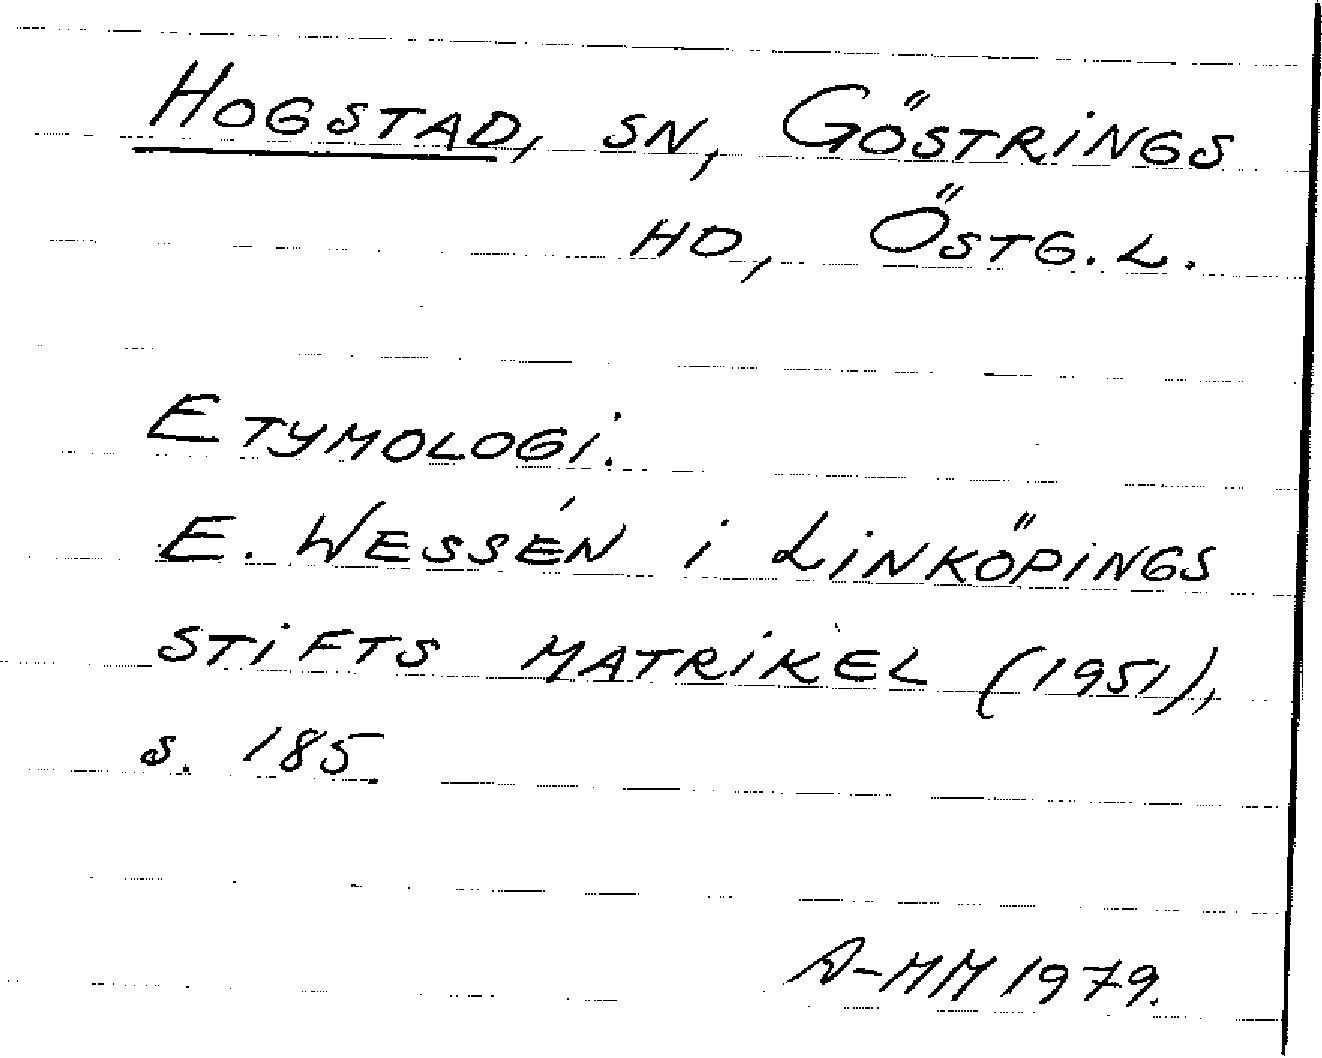 HOGSTAD, SN, GÖSTRINGS
HD, ÖSTG. L.
ETYMOLOGI.
E. WESSÉN I LINKÖPINGS
STIFTS MATRIKEL (1951),
S. 185.
A-MM 1979.